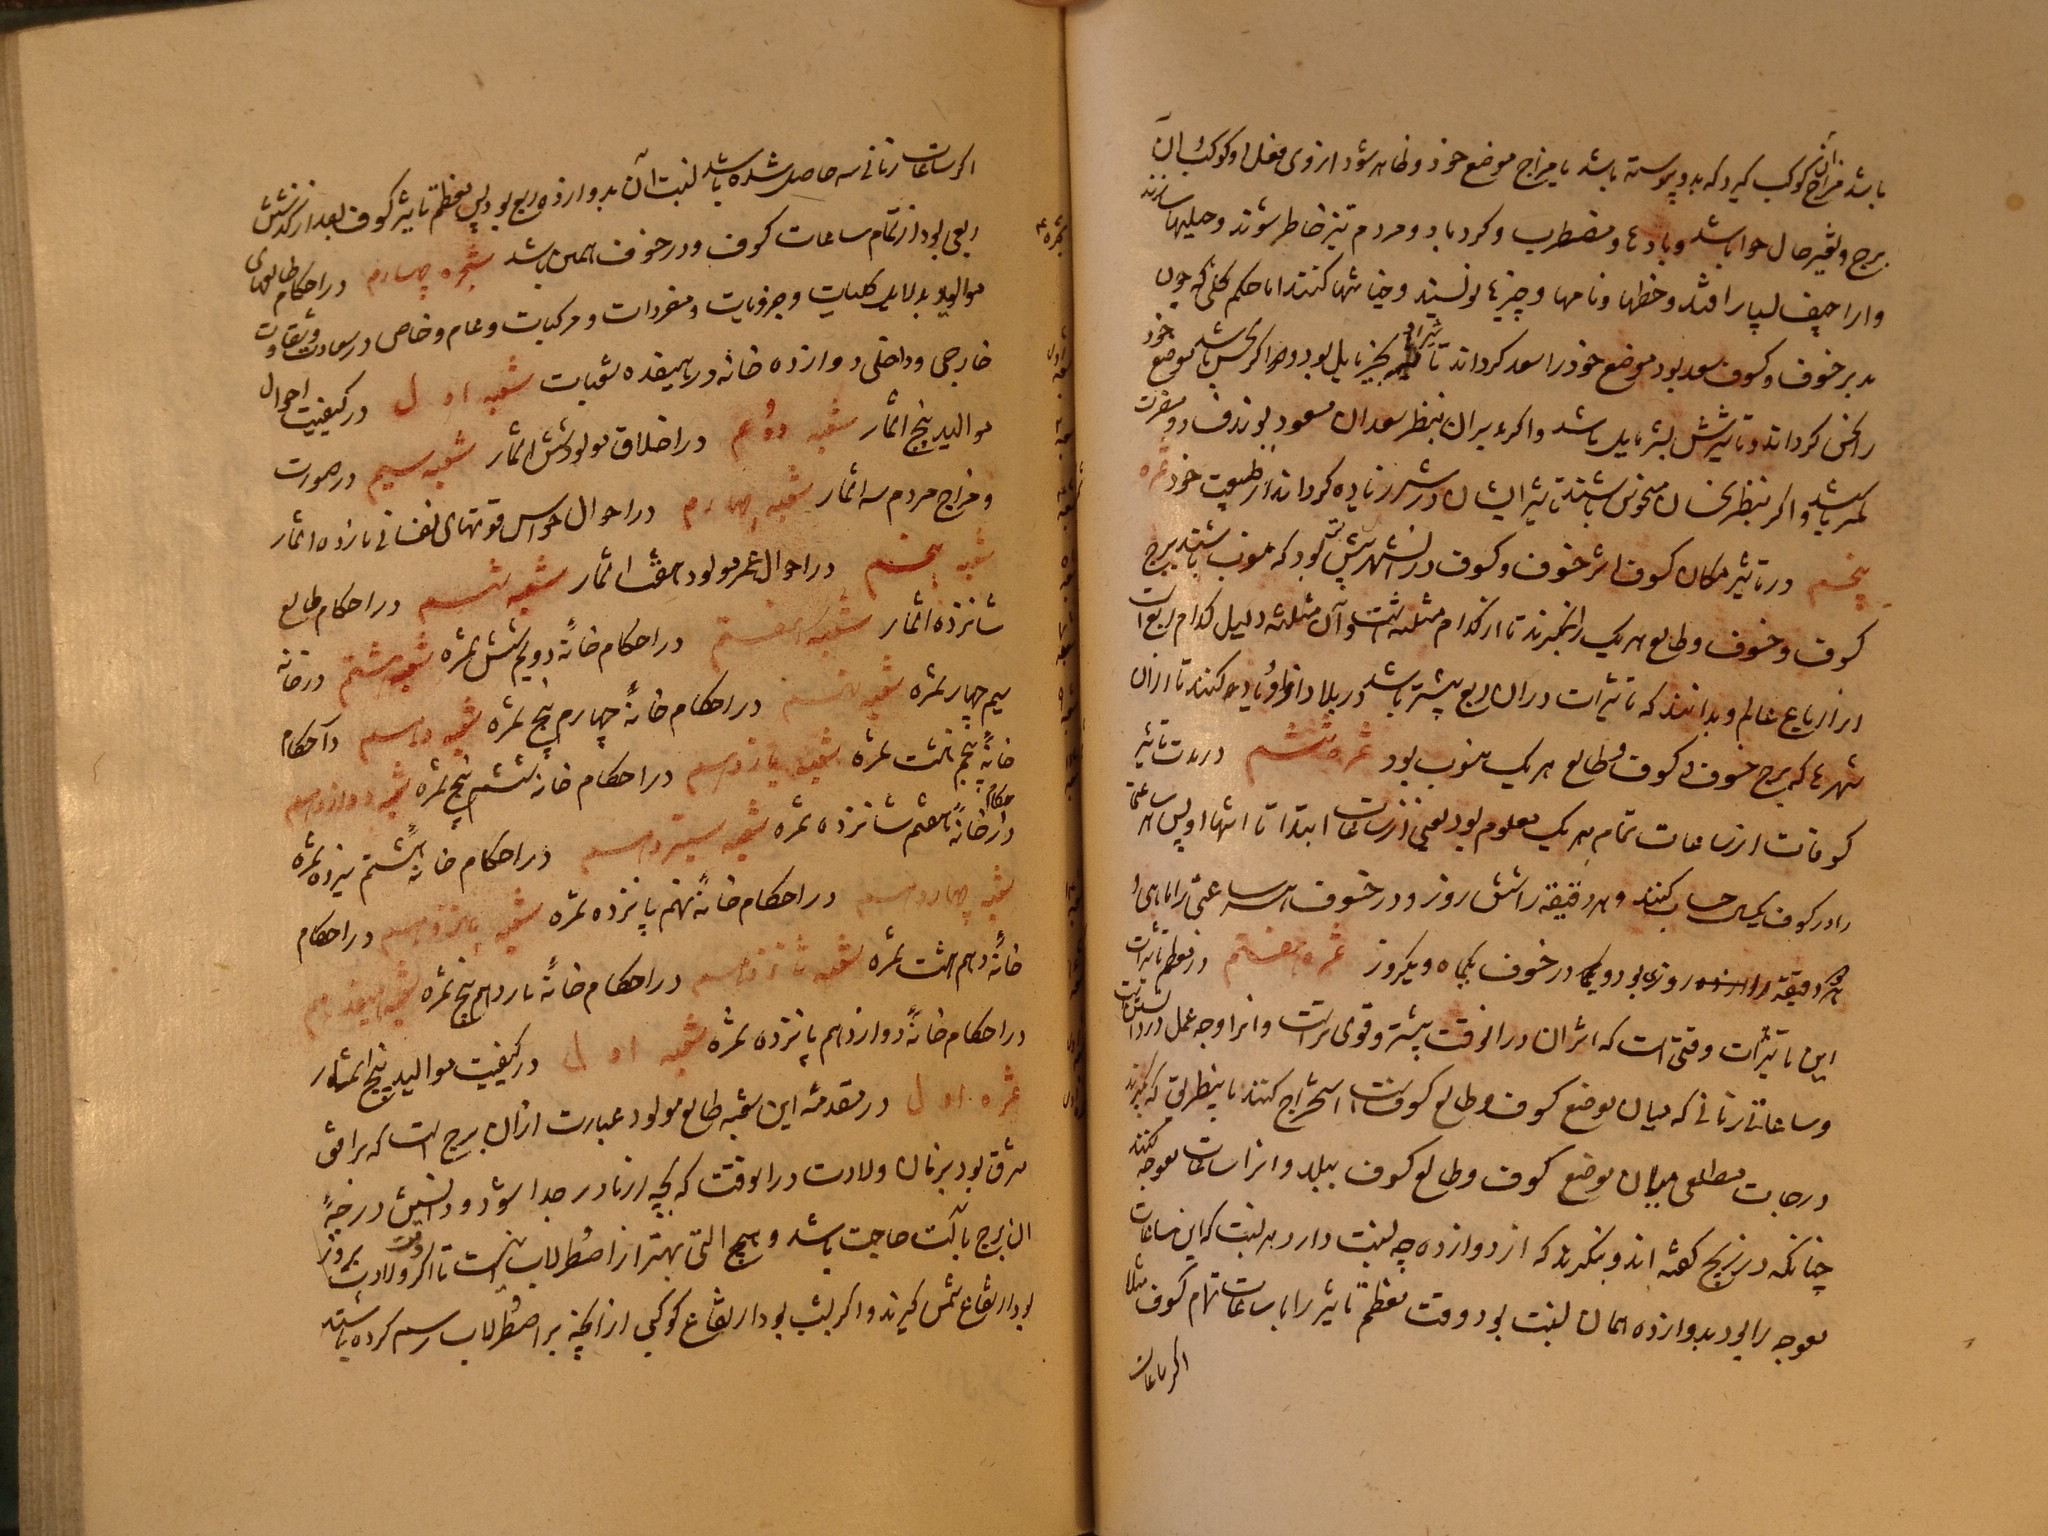 باشد مزاج آن کوکب گیرد که بدو پیوسته باشد یا مزاج موضع خود و ظاهر شود از وی فعل او و کوکب آن
برج و تغیر حال هوا باشد و بادها و مضطرب و گردباد و مردم تیز خاطر شوند و حیلتها سازند
و اراجیف بسیار افتد و خطها و نامها و چیزها نویسند و خیانتها کنند اما حکم کلی که چون
مدبر خسوف و کسوف سعد بود موضع خود را سعد گرداند تاثیر او بخیر مایل بود و اگر نحس باشد موضع خود
را نحس گرداند و تاثیرش بشر مایل باشد و اگر مدبران بنظر سعدان مسعود بوند فساد و مضرت
کمتر باشد و اگر بنظر نحسان منحوس باشند تاثیر ایشان در شر زیاده گرداند از طبیعت خود ثمره
پنجم در تاثیر مکان کسوف اثر خسوف و کسوف در آن شهر بیشتر بود که منسوب باشند ببرج
کسوف و خسوف و طالع هر یک را بنگرند تا از کدام مثلثه است و آن مثلثه دلیل کدام ربع است
از ارباع عالم و بدانند که تاثیرات در آن ربع بیشتر باشد در بلاد او یاد کنند تا از آن
شهرها که برج خسوف و کسوف و طالع هر یک منسوب بود ثمره ششم در مدت تاثیر
کسوفات از ساعات تمام هر یک معلوم بود یعنی از ساعات ابتدا تا انتها او پس هر ساعتی
را در کسوف یکسال حساب کنند و هر دقیقه را شش روز و در خسوف هر ساعتی را ماهی و
هر دقیقه روزی بود و یکماه در خسوف یکماه و یکروز ثمره هفتم در معظم تاثیرات
این تاثیرات وقتی است که اثر آن در آن وقت بیشتر و قوی تر است و آنرا وجه عمل در دانستن
و ساعاتی زمانی که میان موضع کسوف و طالع کسوف است استخراج کنند باینطریق که بگیرند
درجات مطالعی میان موضع کسوف و طالع کسوف ببلد و آنرا ساعات معوجه کنند
چنانکه در زیج گفته اند و بنگرند که از دوازده چه نسبت دارد هر نسبت که این ساعات
معوجه را بود بدوازده همان نسبت بود وقت معظم تاثیر را با ساعات تمام کسوف مثلا
اگر ساعات
اگر ساعات زمانی سه حاصل شده باشد نسبت آن بدوازده ربع بود پس معظم تاثیر کسوف بعد از گذشتن
ربعی بود از تمام ساعات کسوف و در خسوف همین باشد شجره چهارم در احکام طالعهای
موالید بدلایل کلیات و جزویات و مفردات و مرکبات و عام و خاص در سعادت و شقاوت
خارجی و داخلی دوازده خانه در هیفده شعبات شعبه اول در کیفیت احوال
موالید پنج اثمار شعبه دوم در اخلاق مولود شش اثمار شعبه سیم در صورت
و مزاج مردم سه اثمار شعبه چهارم در احوال حواس قوتهای نفسانی یازده اثمار
شعبه پنجم در احوال عمر مولود هفت اثمار شعبه ششم در احکام طالع
شانزده اثمار شعبه هفتم در احکام خانه دویم شش ثمره شعبه هشتم در خانه
سیم چهار ثمره شعبه نهم در احکام خانه چهارم پنج ثمره شعبه دهم در احکام
خانه پنجم هشت ثمره شعبه یازدهم در احکام خانه ششم پنج ثمره شعبه دوازدهم
در احکام خانه هفتم شانزده ثمره شعبه سیزدهم در احکام خانه هشتم سیزده ثمره
شعبه چهاردهم در احکام خانه نهم پانزده ثمره شعبه پانزدهم در احکام
خانه دهم هشت ثمره شعبه شانزدهم در احکام خانه یازدهم پنج ثمره شعبه هیفدهم
در احکام خانه دوازدهم پانزده ثمره شعبه اول در کیفیت موالید پنج اثمار
ثمره اول در مقدمه این شعبه طالع مولود عبارت از آن برج است که بر افق
شرق بود بزمان ولادت در آن وقت که بچه از مادر جدا شود و دانستن درجه
آن برج بآلت حاجت باشد و هیچ آلتی بهتر از اصطرلاب نیست تا اگر وقت ولادت بروز
بود ارتفاع شمس گیرند و اگر بشب بود ارتفاع کوکبی از آنچه بر اصطرلاب رسم کرده باشند